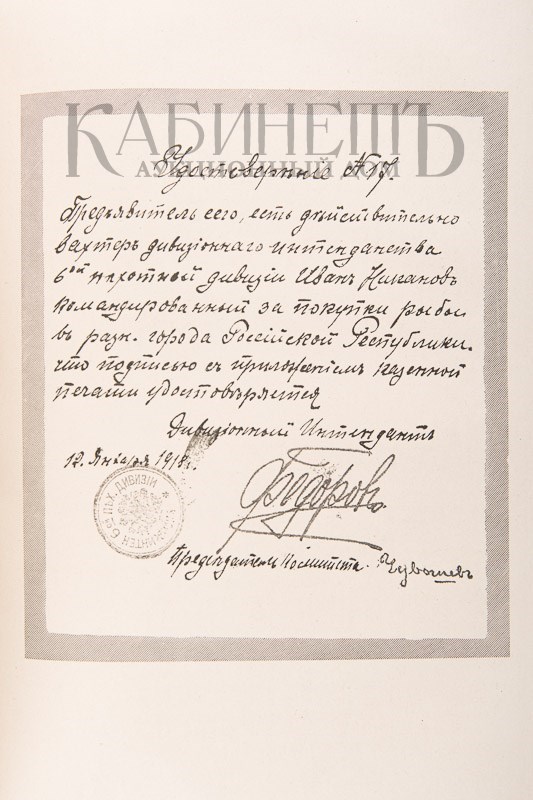 КАБИНЕТЪ
АУКЦИОННЫЙ ДОМ
Удостоверение №17.
Предъявитель сего, есть дѣйствительно
вахтеръ дивизіоннаго интендантства
6ой пехотной дивизіи Иванъ Никановъ
командированный за покупки рыбы
въ разн. города Россійской Республики.
что подписью съ приложеніемъ казенной
печати удостовѣряется
Дивизіонный Интендантъ
12. Января 1918 г.
Федоровъ
6-й ПѢХ. ДИВИЗІИ
Председатель Комитета. Чувашевъ